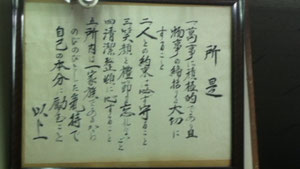 所是
一萬事に積極的であり且
物事の締括を大切に
すること
二人との約束は必ず守ること
三笑顔と禮節を忘れぬこと
四清潔整頓に心すること
五所内は一家族である
のびのびとした氣持で
自己の本分に励むこと
以上